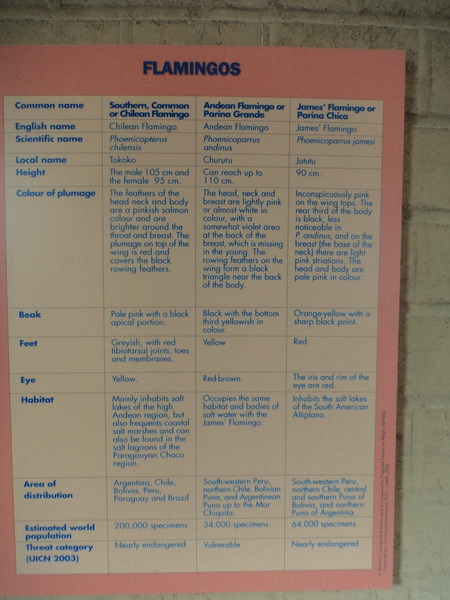 FLAMINGOS
Common name
Southern, Common
or Chilean Flamingo
Andean Flamingo or
Parina Grande
James' Flamingo or
Parina Chica
English name
Chilean Flamingo
Andean Flamingo
James' Flamingo
Scientific name
Phoenicopterus
chilensis
Phoenicoparrus
andinus
Phoenicoparrus jamesi
Local name
Tokoko
Chururu
Jututu
Height
The male 105 cm and
the female 95 cm.
Can reach up to
110 cm.
90 cm.
Colour of plumage
The feathers of the
head neck and body
are a pinkish salmon
colour and are
brighter around the
throat and breast. The
plumage on top of the
wing is red and
covers the black
rowing feathers.
The head, neck and
breast are lightly pink
or almost white in
colour, with a
somewhat violet area
at the back of the
breast, which is missing
in the young. The
rowing feathers on the
wing form a black
triangle near the back
of the body.
Inconspicuously pink
on the wing tops. The
rear third of the body
is black, less
noticeable in
P. andinus, and on the
breast (the base of the
neck) there are light
pink striations. The
head and body are
pale pink in colour.
Beak
Pale pink with a black
apical portion.
Black with the bottom
third yellowish in
colour.
Orange-yellow with a
sharp black point.
Feet
Greyish, with red
tibiotarsal joints, toes
and membranes.
Yellow
Red.
Eye
Yellow.
Red-brown.
The iris and rim of the
eye are red.
Habitat
Mainly inhabits salt
lakes of the high
Andean region, but
also frequents coastal
salt marshes and can
also be found in the
salt lagoons of the
Paragauyan Chaco
region.
Occupies the same
habitat and bodies of
salt water with the
James' Flamingo.
Inhabits the salt lakes
of the South American
Altiplano.
Area of
distribution
Argentina, Chile,
Bolivia, Peru,
Paraguay and Brazil
South-western Peru,
northern Chile, Bolivian
Puna, and Argentinean
Puna up to the Mar
Chiquita.
South-western Peru,
northern Chile, central
and southern Puna of
Bolivia, and northern
Puna of Argentina.
Estimated world
population
200.000 specimens
34.000 specimens
64.000 specimens
Threat category
(UICN 2003)
Nearly endangered
Vulnerable
Nearly endangered